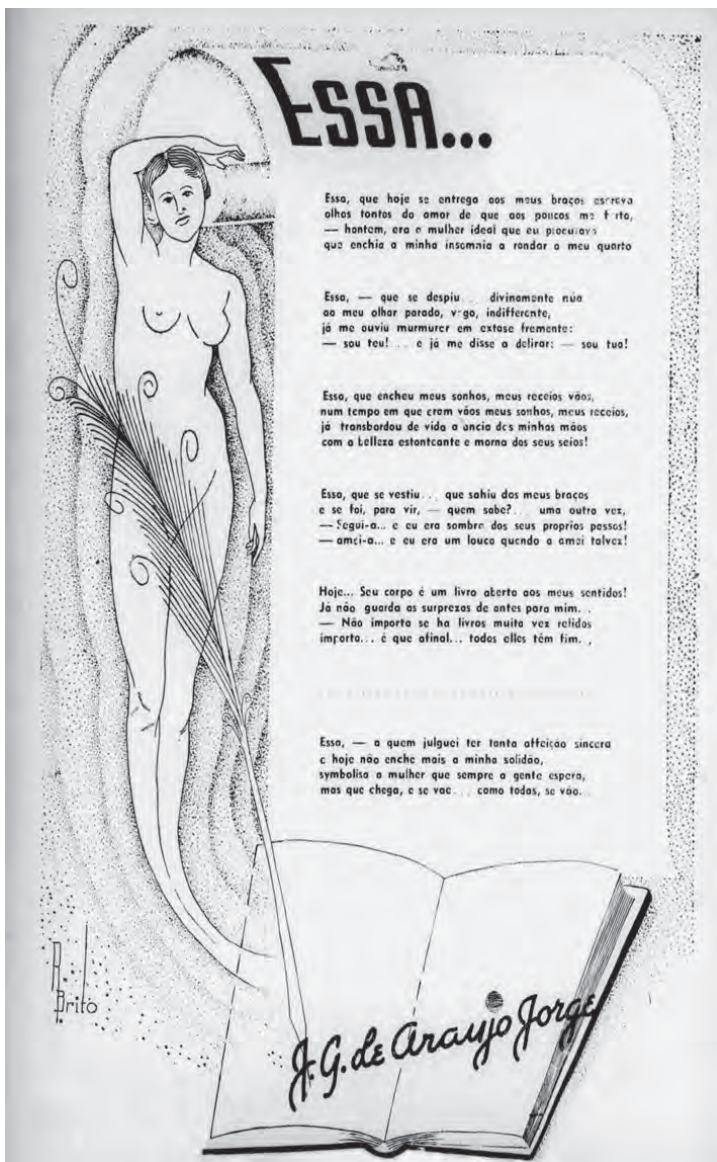 ESSA...
Essa, que hoje se entrega aos meus braços escrava
olhos tontos do amor de que aos poucos me farto,
— hontem, era a mulher ideal que eu procurava
que enchia a minha insomnia a rondar o meu quarto
Essa, — que se despiu... divinamente núa
ao meu olhar parado, vago, indifferente,
já me ouviu murmurar em extase fremente:
— sou teu!... e já me disse a delirar: — sou tua!
Essa, que encheu meus sonhos, meus receios vãos,
num tempo em que eram vãos meus sonhos, meus receios,
já transbordou de vida a ancia das minhas mãos
com a belleza estonteante e morna dos seus seios!
Essa, que se vestiu... que sahiu dos meus braços
e se foi, para vir, — quem sabe?... uma outra vez,
— Segui-a... e eu era sombra dos seus proprios passos!
— amei-a... e eu era um louco quando a amei talvez!
Hoje... Seu corpo é um livro aberto aos meus sentidos!
Já não guarda as surprezas de antes para mim...
— Não importa se ha livros muita vez relidos
importa... é que afinal... todos elles têm fim...
Essa, — a quem julguei ter tanta affeição sincera
e hoje não enche mais a minha solidão,
symbolisa a mulher que sempre a gente espera,
mas que chega, e se vae... como todas, se vão...
J. G. de Araujo Jorge
Brito